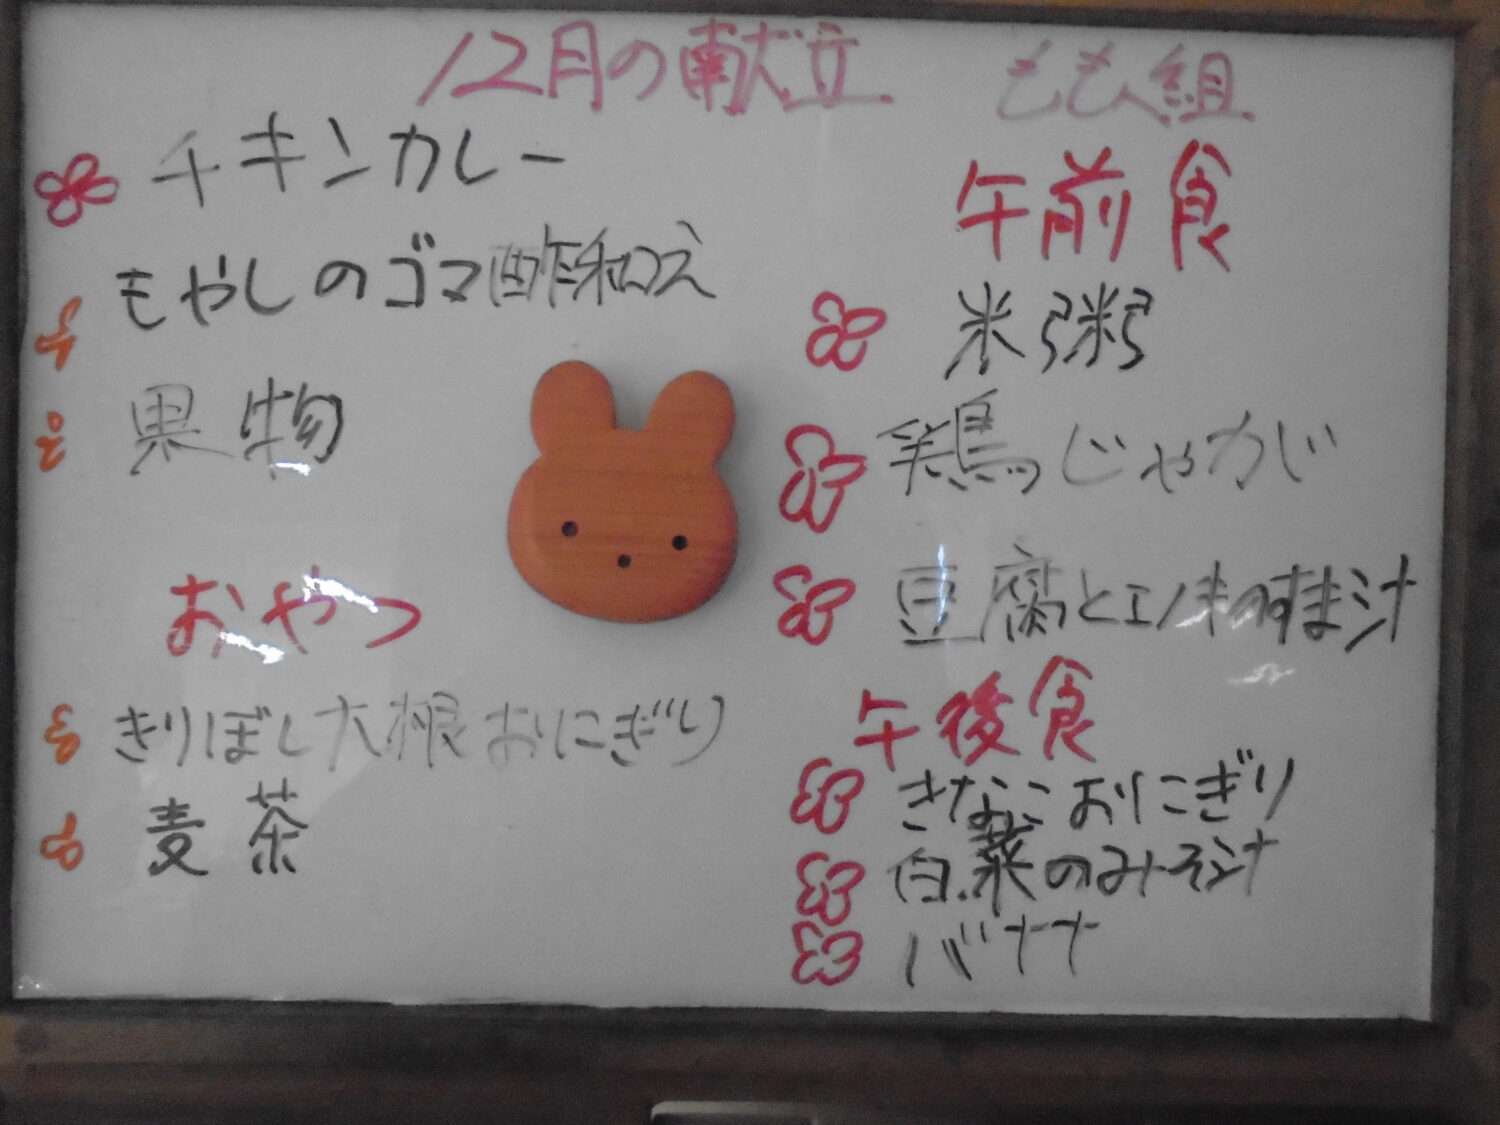 12月の献立
チキンカレー
もやしのゴマ酢和え
果物
おやつ
きりぼし大根おにぎり
麦茶
もも組
午前食
米粥
鶏じゃがじ
豆腐とエノキのすまし汁
午後食
きなこおにぎり
白菜のみそ汁
バナナ